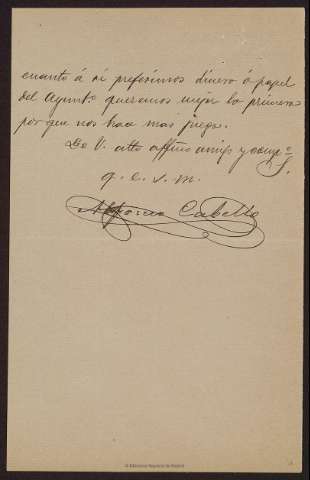 cuanto á si preferimos dinero ó papel
del Ayuntº queremos mejor lo primero
por que nos hace mas juego.
De V. atto affmo amigo y compº
S.
q. b. s. m.
Alfonso Cabello
© Biblioteca Nacional de España